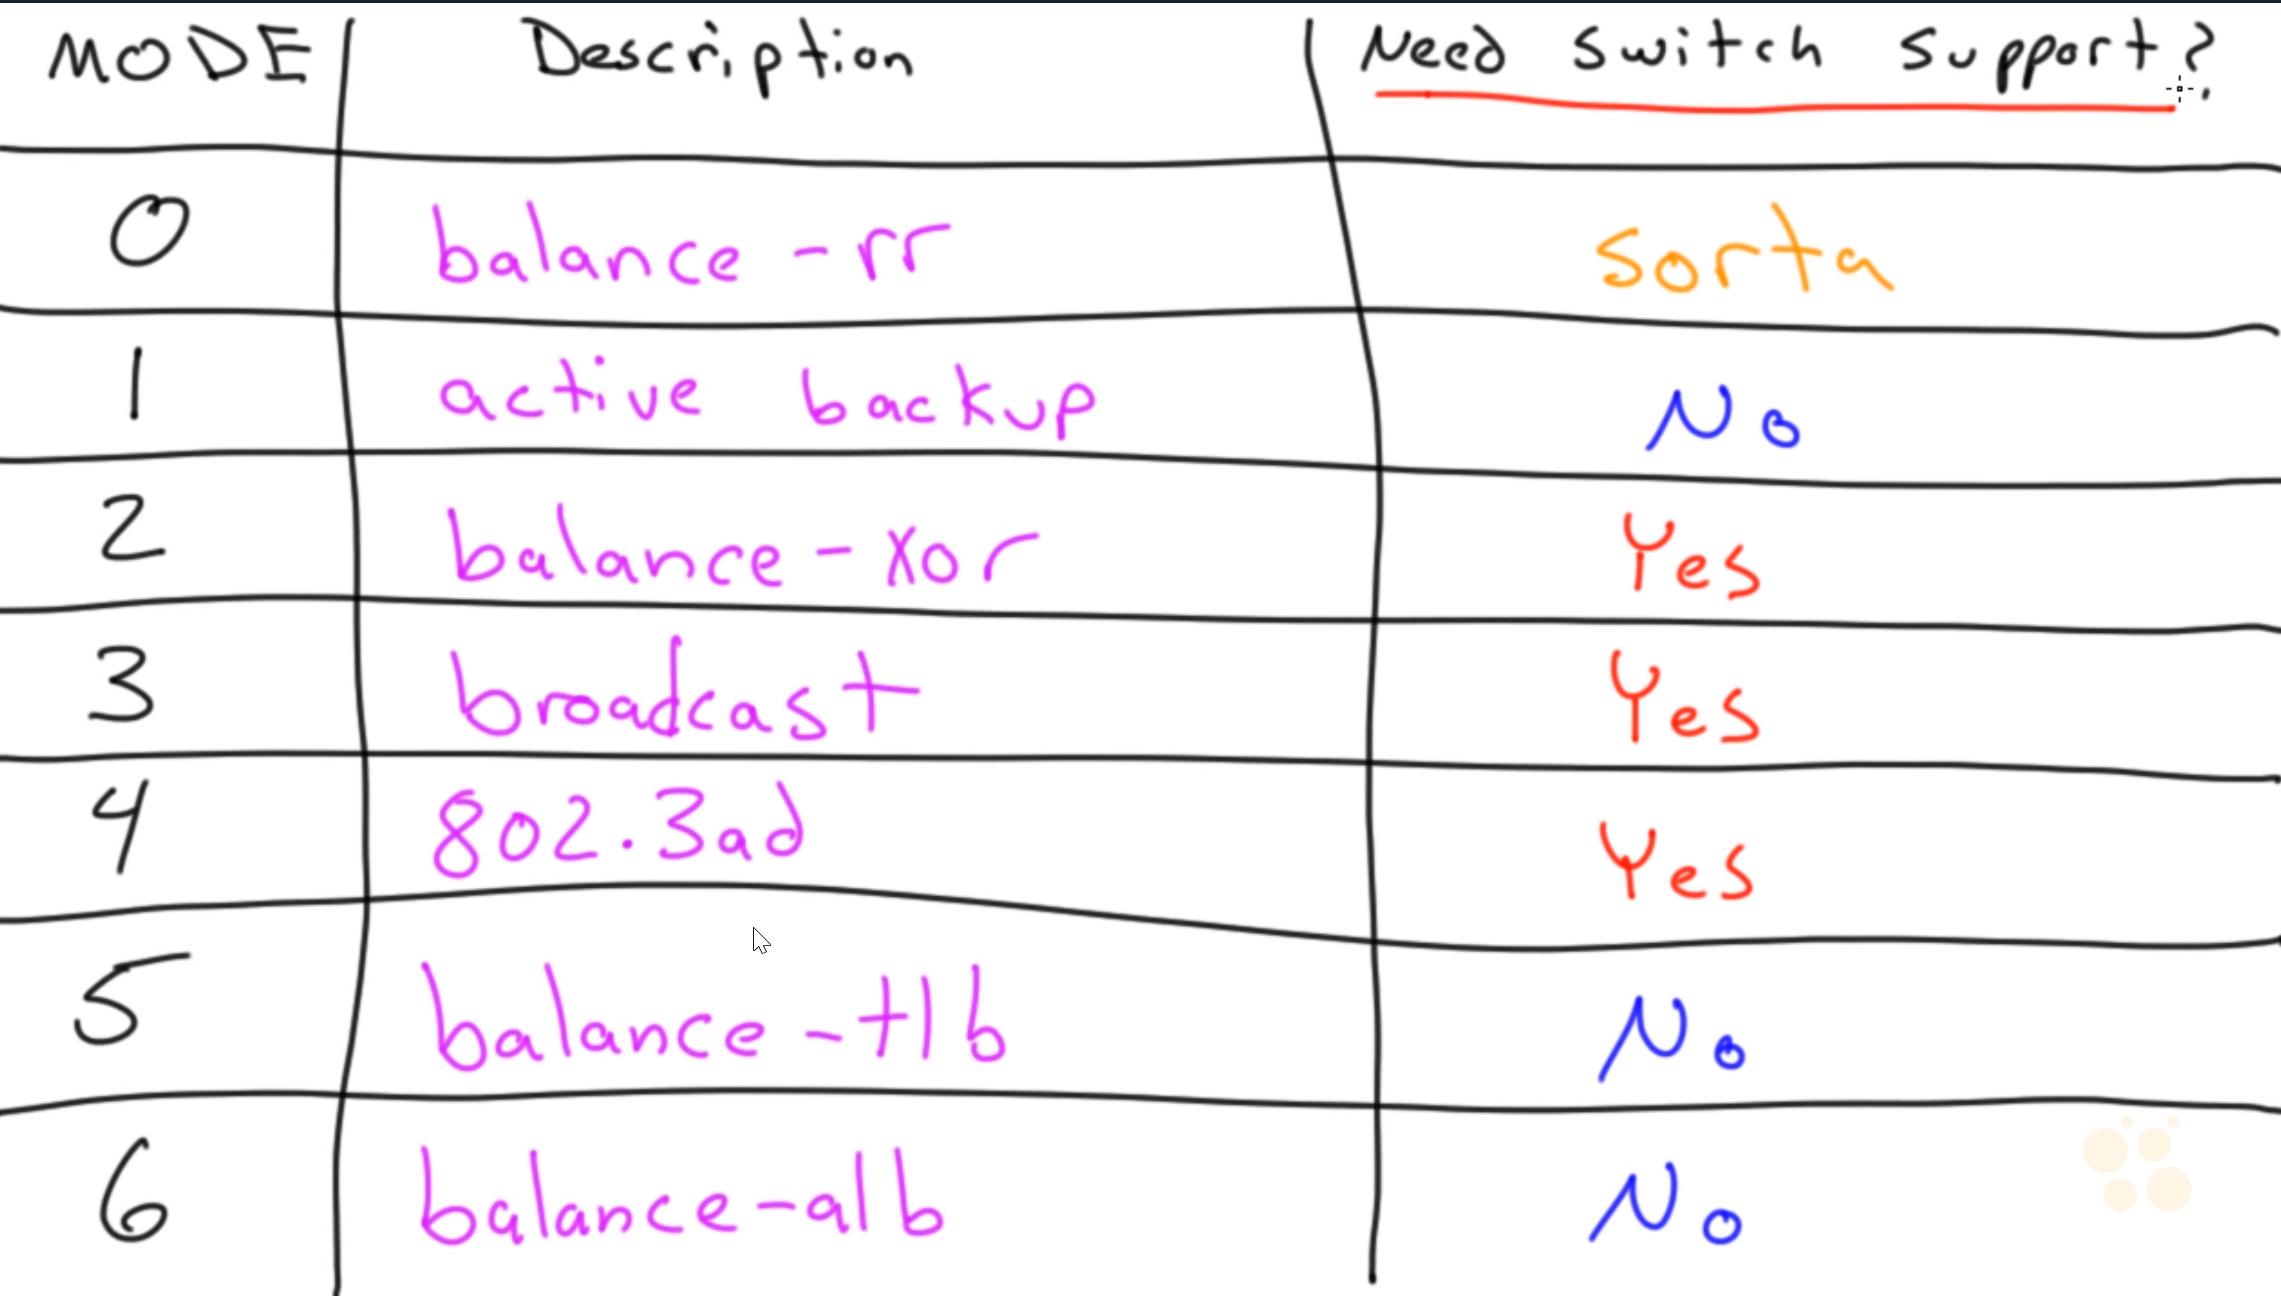 MODE Description Need switch support?
0 balance-rr sorta
1 active backup No
2 balance-xor Yes
3 broadcast Yes
4 802.3ad Yes
5 balance-tlb No
6 balance-alb No